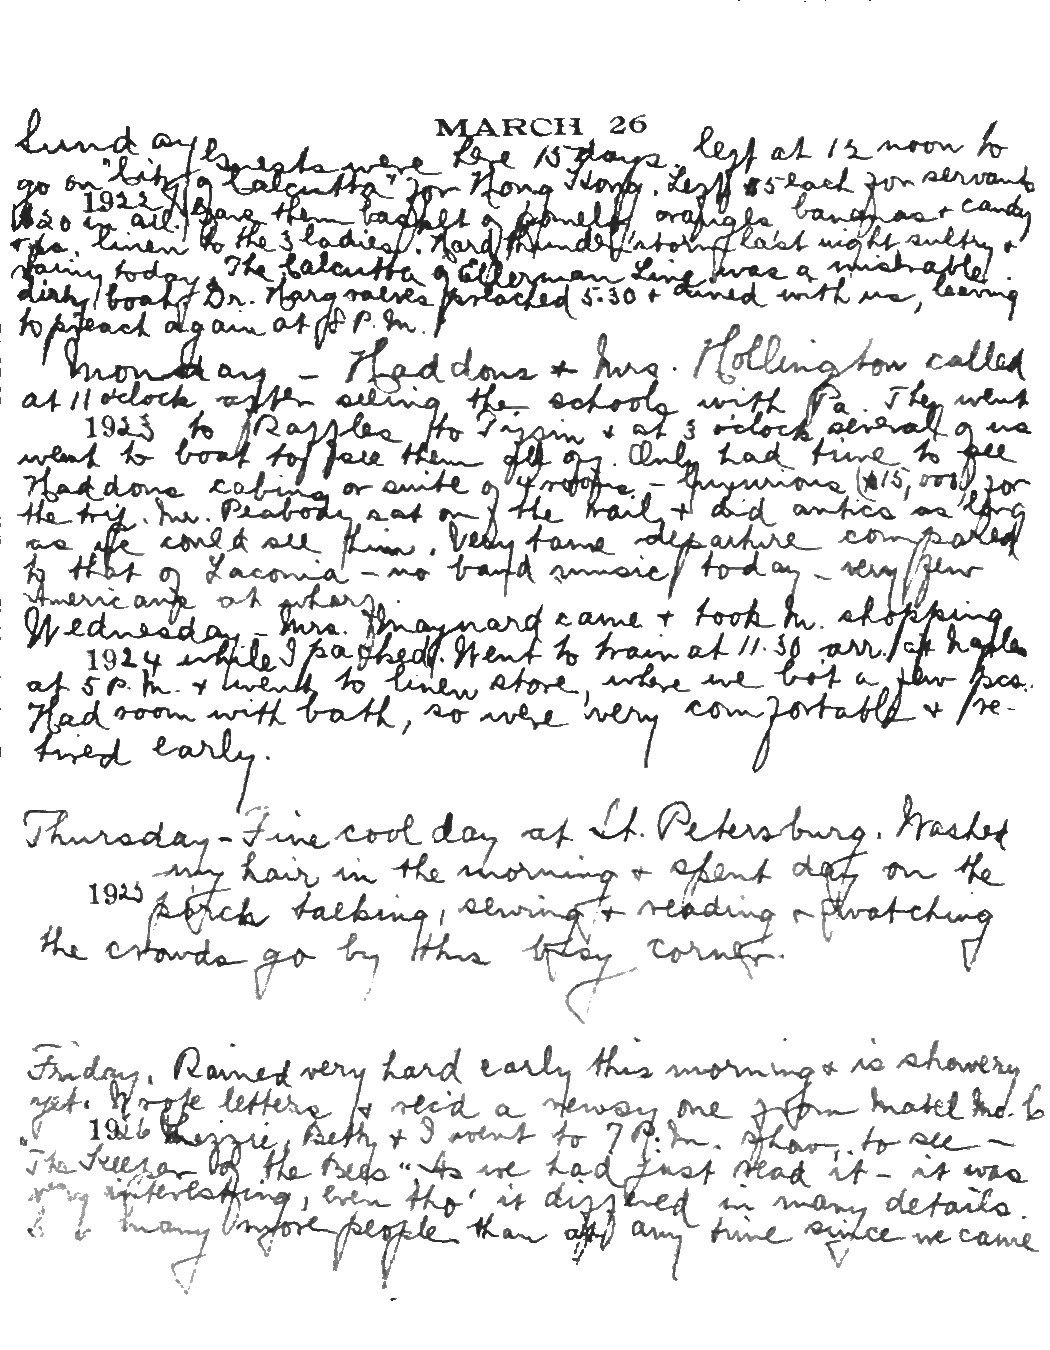 MARCH 26
Sunday Guests were here 15 days. left at 12 noon to
go on "City of Calcutta" for Hong Kong. Left $5 each for servants
1922 $20 in all. Gave them basket of pomelos oranges bananas + candy
+ pcs. linen to the 3 ladies. Hard thunder storm last night sultry +
rainy today. The Calcutta of Ellerman Line was a miserable
dirty boat. Dr. Hargraves preached 5.30 + dined with us, leaving
to preach again at 8 P.M.
Monday - Haddons + Mrs. Hollington called
at 11 oclock after seeing the schools with Pa. They went
1923 to Raffles to Tiffin + at 3 o'clock several of us
went to boat to see them get off. Only had time to see
Haddons cabins or suite of 4 rooms - luxurious ($15,000) for
the trip. Mr. Peabody sat on the rail + did antics as long
as we could see him. Very tame departure compared
to that of Laconia - no band music today - very few
Americans at wharf.
Wednesday - Mrs. Maynard came + took M. shopping
1924 while I packed. Went to train at 11.30 arr. at Naples
at 5 P.M. + went to linen store, where we bot a few pcs.
Had room with bath, so were very comfortable + re-
tired early.
Thursday - Fine cool day at St. Petersburg. Washed
my hair in the morning + spent day on the
1925 porch talking, sewing + reading + watching
the crowds go by this busy corner.
Friday. Rained very hard early this morning + is showery
yet. Wrote letters + rec'd a newsy one from Mabel Mc. C
1926 Lizzie, Beth, + I went to 7 P.M. show, to see -
"The Keeper of the Bees". As we had just read it - it was
very interesting, even tho' it differed in many details.
many more people than at any time since we came